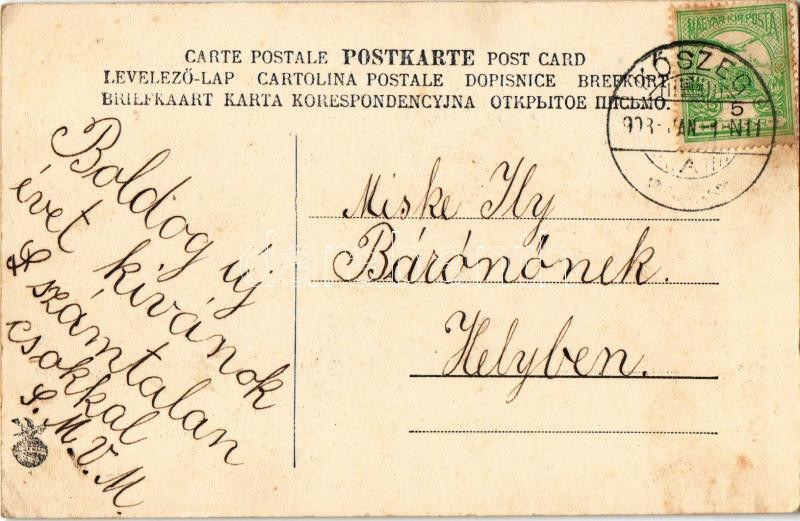 CARTE POSTALE POSTKARTE POST CARD
LEVELEZŐ-LAP CARTOLINA POSTALE DOPISNICE BREFKORT
BRIEFKAART KARTA KORESPONDENCYJNA ОТКРЫТОЕ ПИСЬМО.
MAGYAR KIR. POSTA
KŐSZEG
5
903 JAN 1 N11
A
Boldog új
évet kívánok
& számtalan
csokkal
S. M. V. M.
Miske Ily
Bárónőnek.
Helyben.